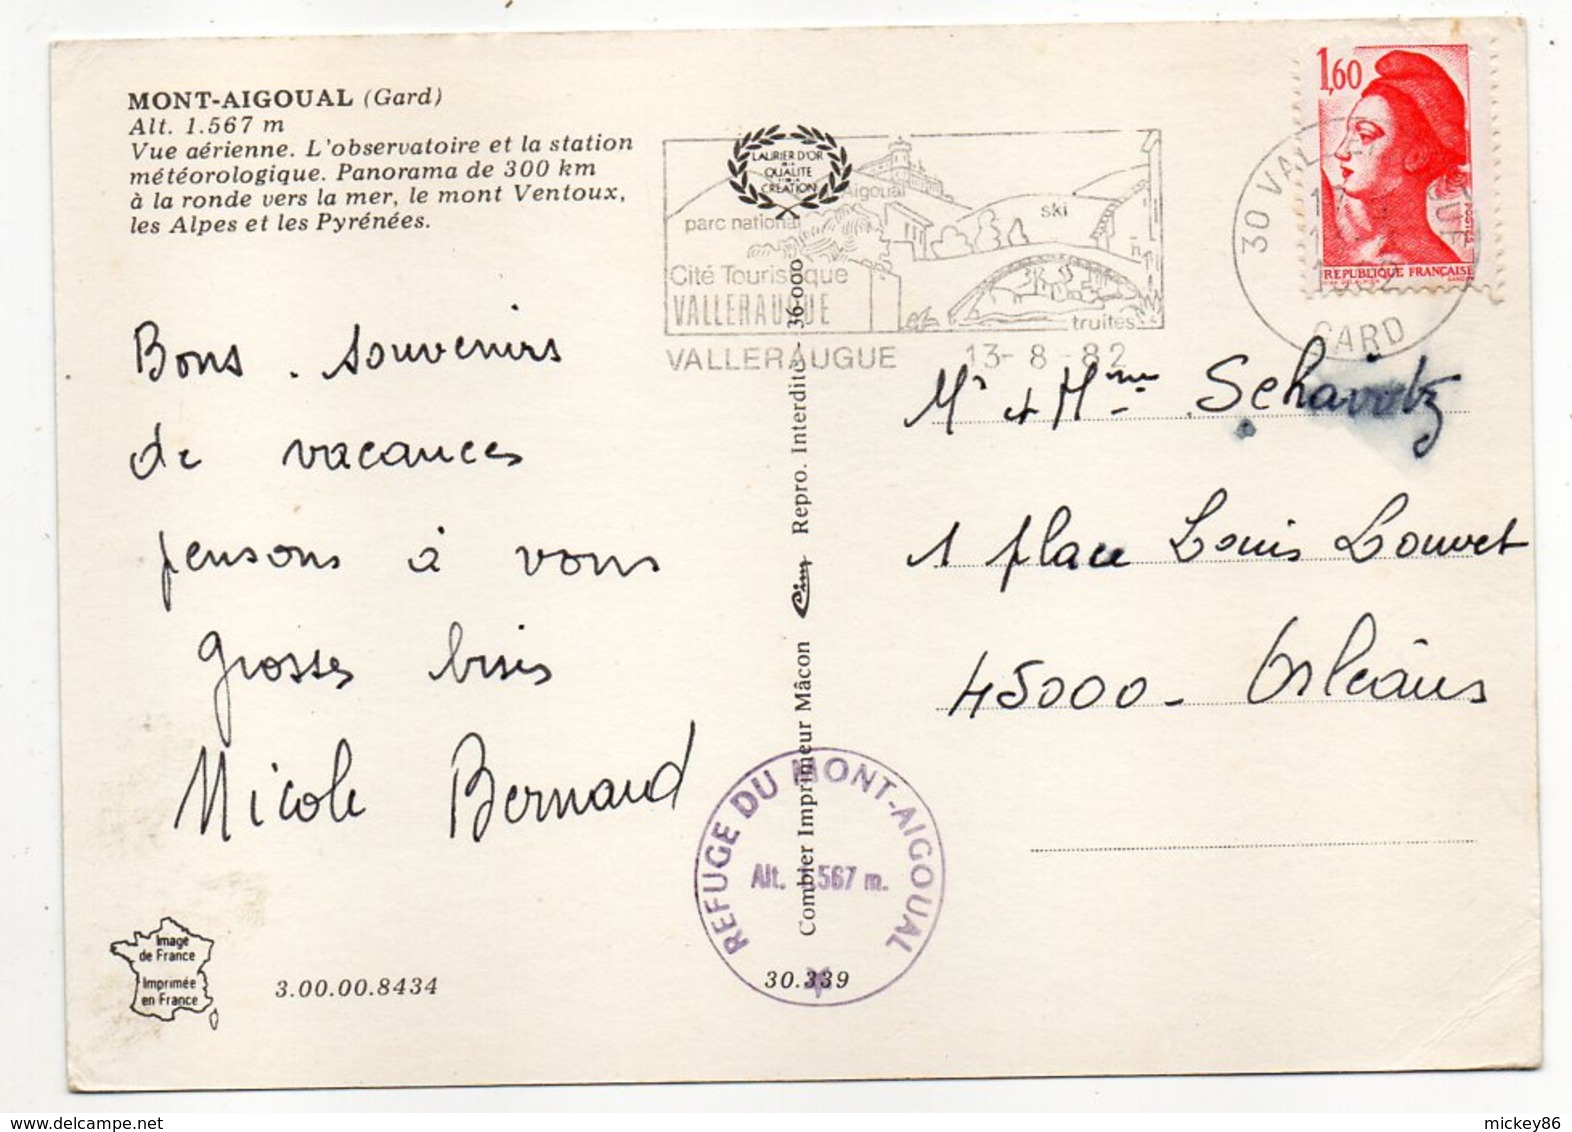 MONT-AIGOUAL (Gard)
Alt. 1.567 m
Vue aérienne. L'observatoire et la station
météorologique. Panorama de 300 km
à la ronde vers la mer, le mont Ventoux,
les Alpes et les Pyrénées.
LAURIER D'OR
DE LA
QUALITÉ
CRÉATION
Aigoual
parc national
ski
Cité Touristique
VALLERAUGUE
truites
VALLERAUGUE 13-8-82
1,60
POSTES
REPUBLIQUE FRANÇAISE
30 VAL
GARD
Bons souvenirs
de vacances
pensons à vous
grosses bises
Nicole Bernaud
Mr & Mme
1 place Louis Louvet
45000 - Orléans
Combier Imprimeur Mâcon Cim Repro. Interdite - 36-000
REFUGE DU MONT-AIGOUAL
Alt. 1.567 m.
Image
de France
Imprimée
en France
3.00.00.8434
30.339
mickey86